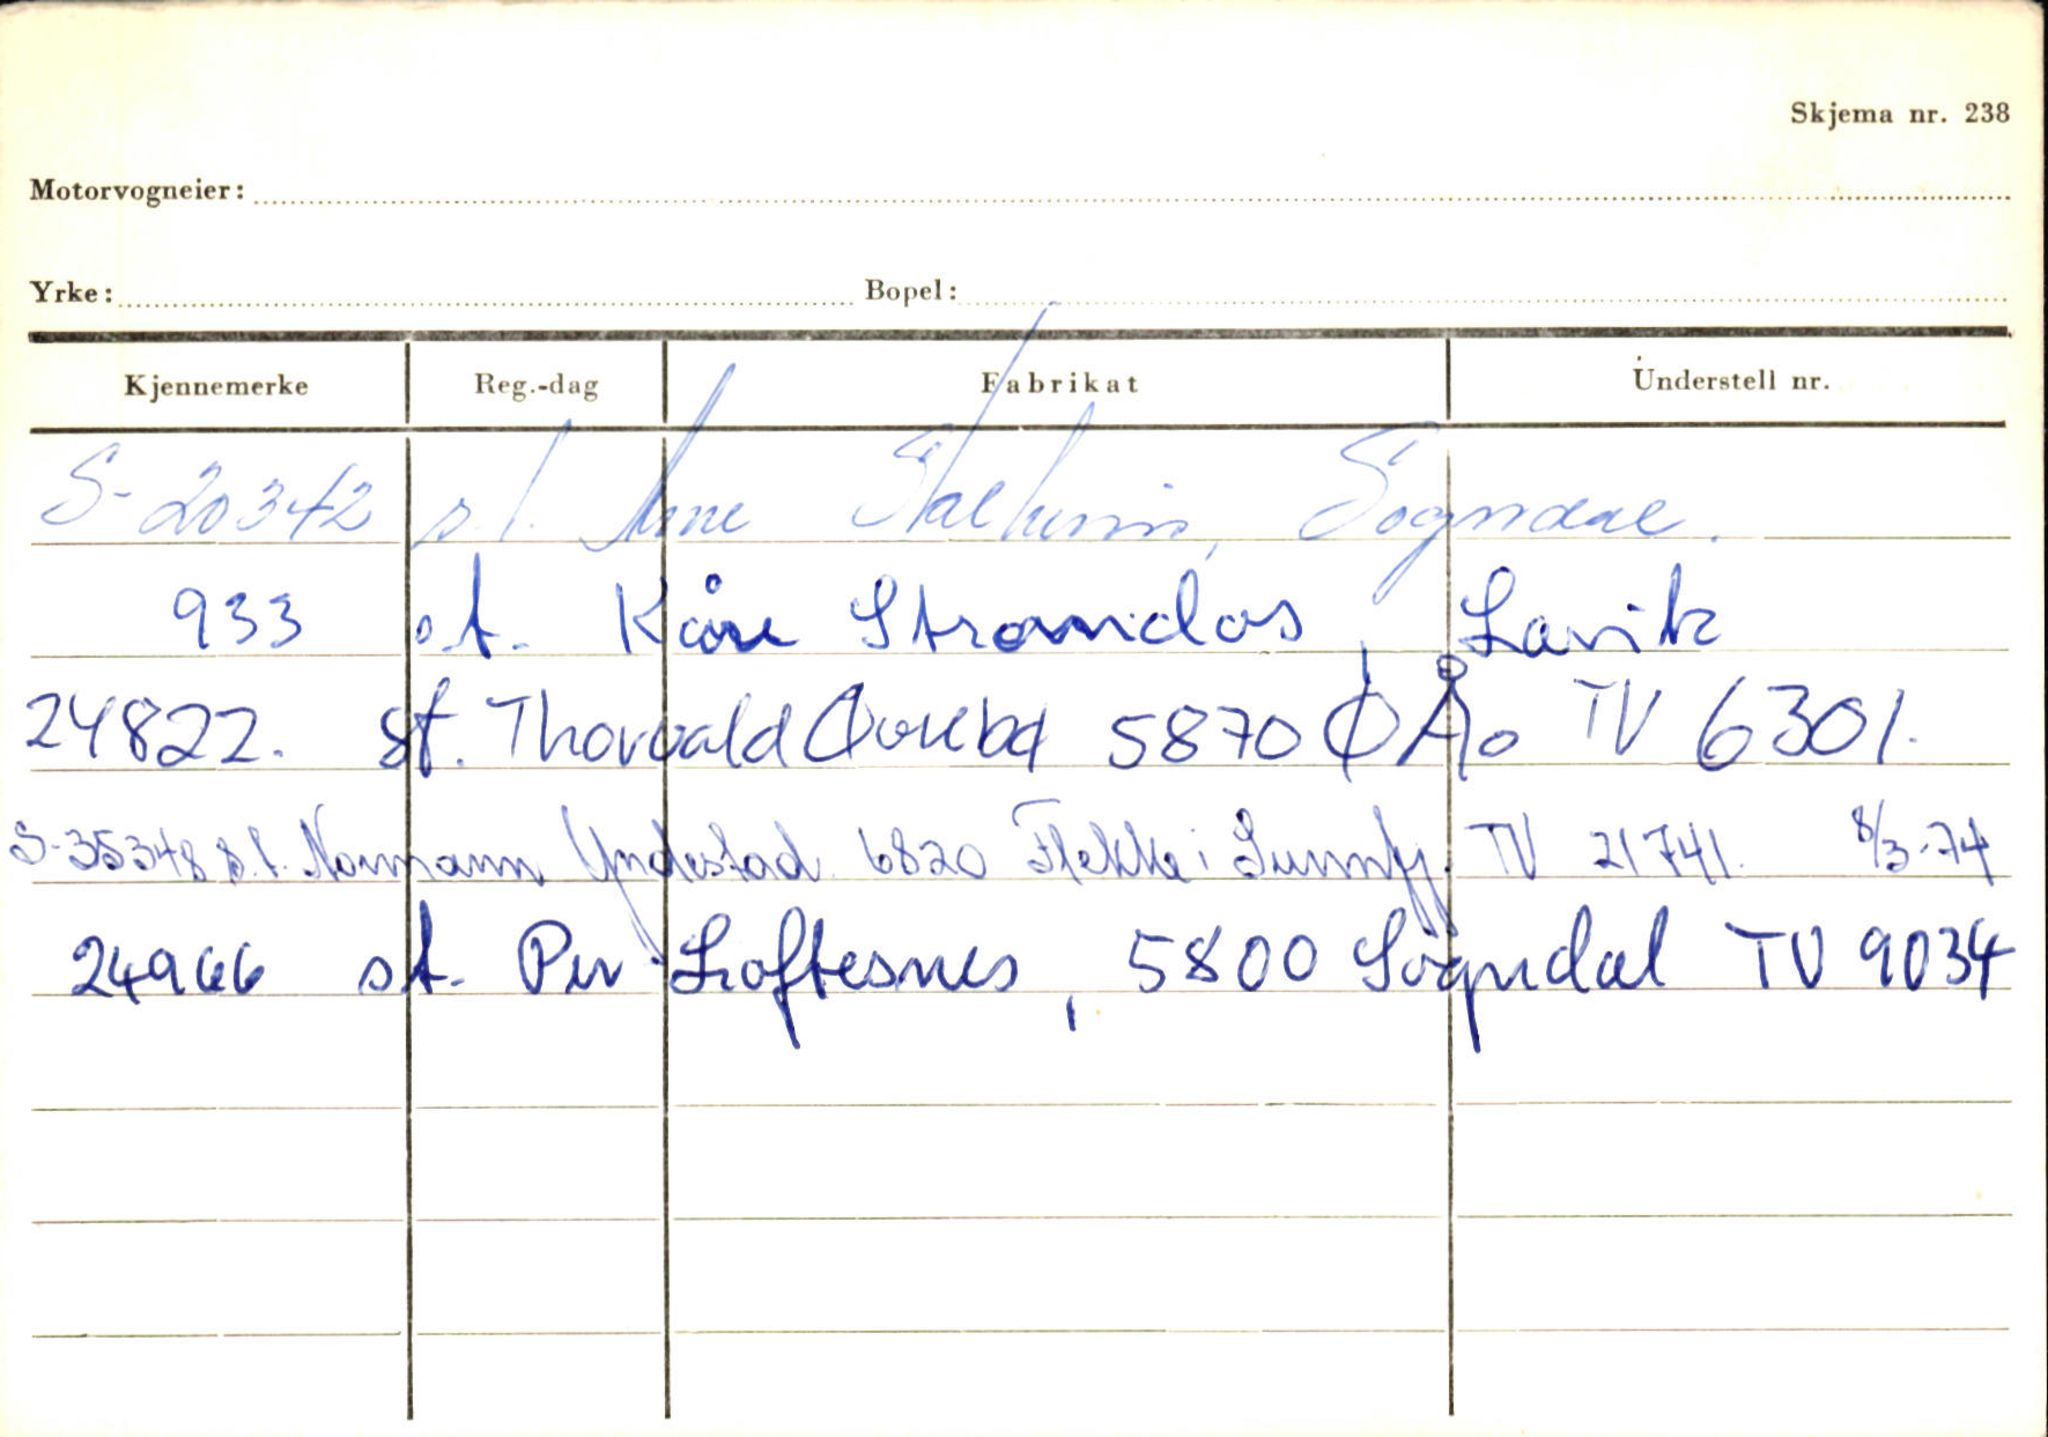 Skjema nr. 238
Motorvogneier:
Yrke: Bopel:
Kjennemerke Reg.-dag Fabrikat Understell nr.
S-20342 s.t. Arne Stalheim, Sogndal.
933 s.t. Kåre Strandos, Lavik
24822. st. Thorvald 5870 ØÅo TV 6301.
S-35348 s.t. Normann Yndestad 6820 Flekke i Sunnfj. TV 21741. 8/3-74
24966 st. Per Loftesnes, 5800 Sogndal TV 9034